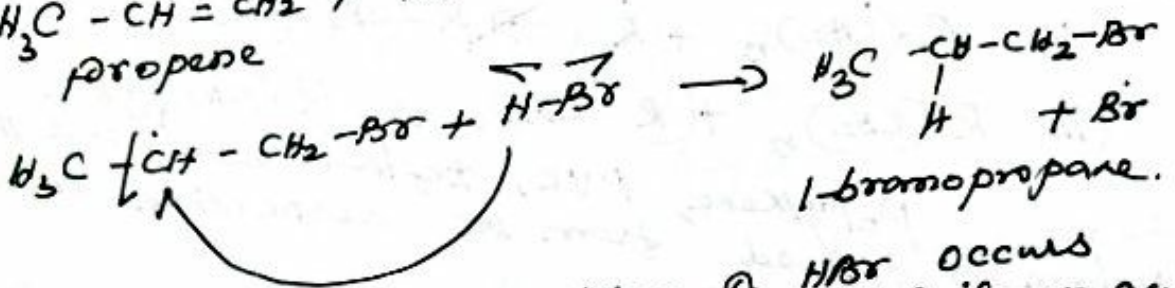 H₃C - CH = CH₂
propene
H₃C - ĊH - CH₂ - Br + H-Br → H₃C - CH - CH₂ - Br
H + Br
1-bromopropane.
HBr occurs